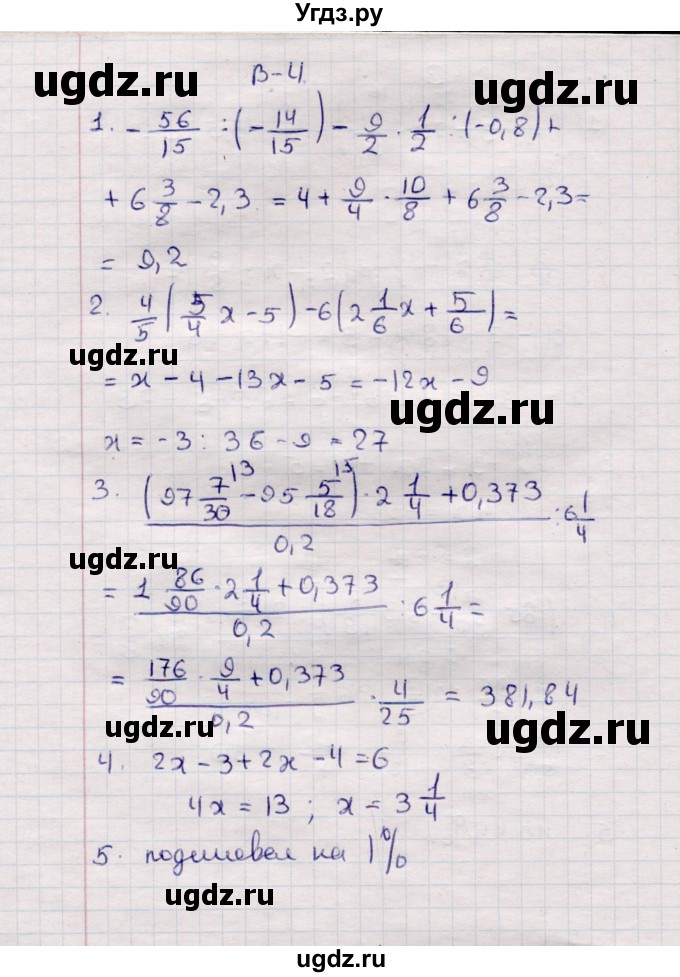 Угдз.ру
ugdz.ru
ugdz.ru
В-4
1. - 56/15 : (- 14/15) - 9/2 · 1/2 : (-0,8) +
+ 6 3/8 - 2,3 = 4 + 9/4 · 10/8 + 6 3/8 - 2,3 =
ugdz.ru
= 9,2
2. 4/5 (5/4 x - 5) - 6 (2 1/6 x + 5/6) =
ugdz.ru
= x - 4 - 13x - 5 = -12x - 9
ugdz.ru
x = -3 : 36 - 9 = 27
3. (97 7/30 - 95 5/18) · 2 1/4 + 0,373 / 0,2 : 6 1/4
13 15
ugdz.ru
= 1 86/90 · 2 1/4 + 0,373 / 0,2 : 6 1/4 =
= 176/90 · 9/4 + 0,373 / 0,2 · 4/25 = 381,84
ugdz.ru
ugdz.ru
4. 2x - 3 + 2x - 4 = 6
4x = 13 ; x = 3 1/4
5. подешовел на 1%
ugdz.ru
ugdz.ru